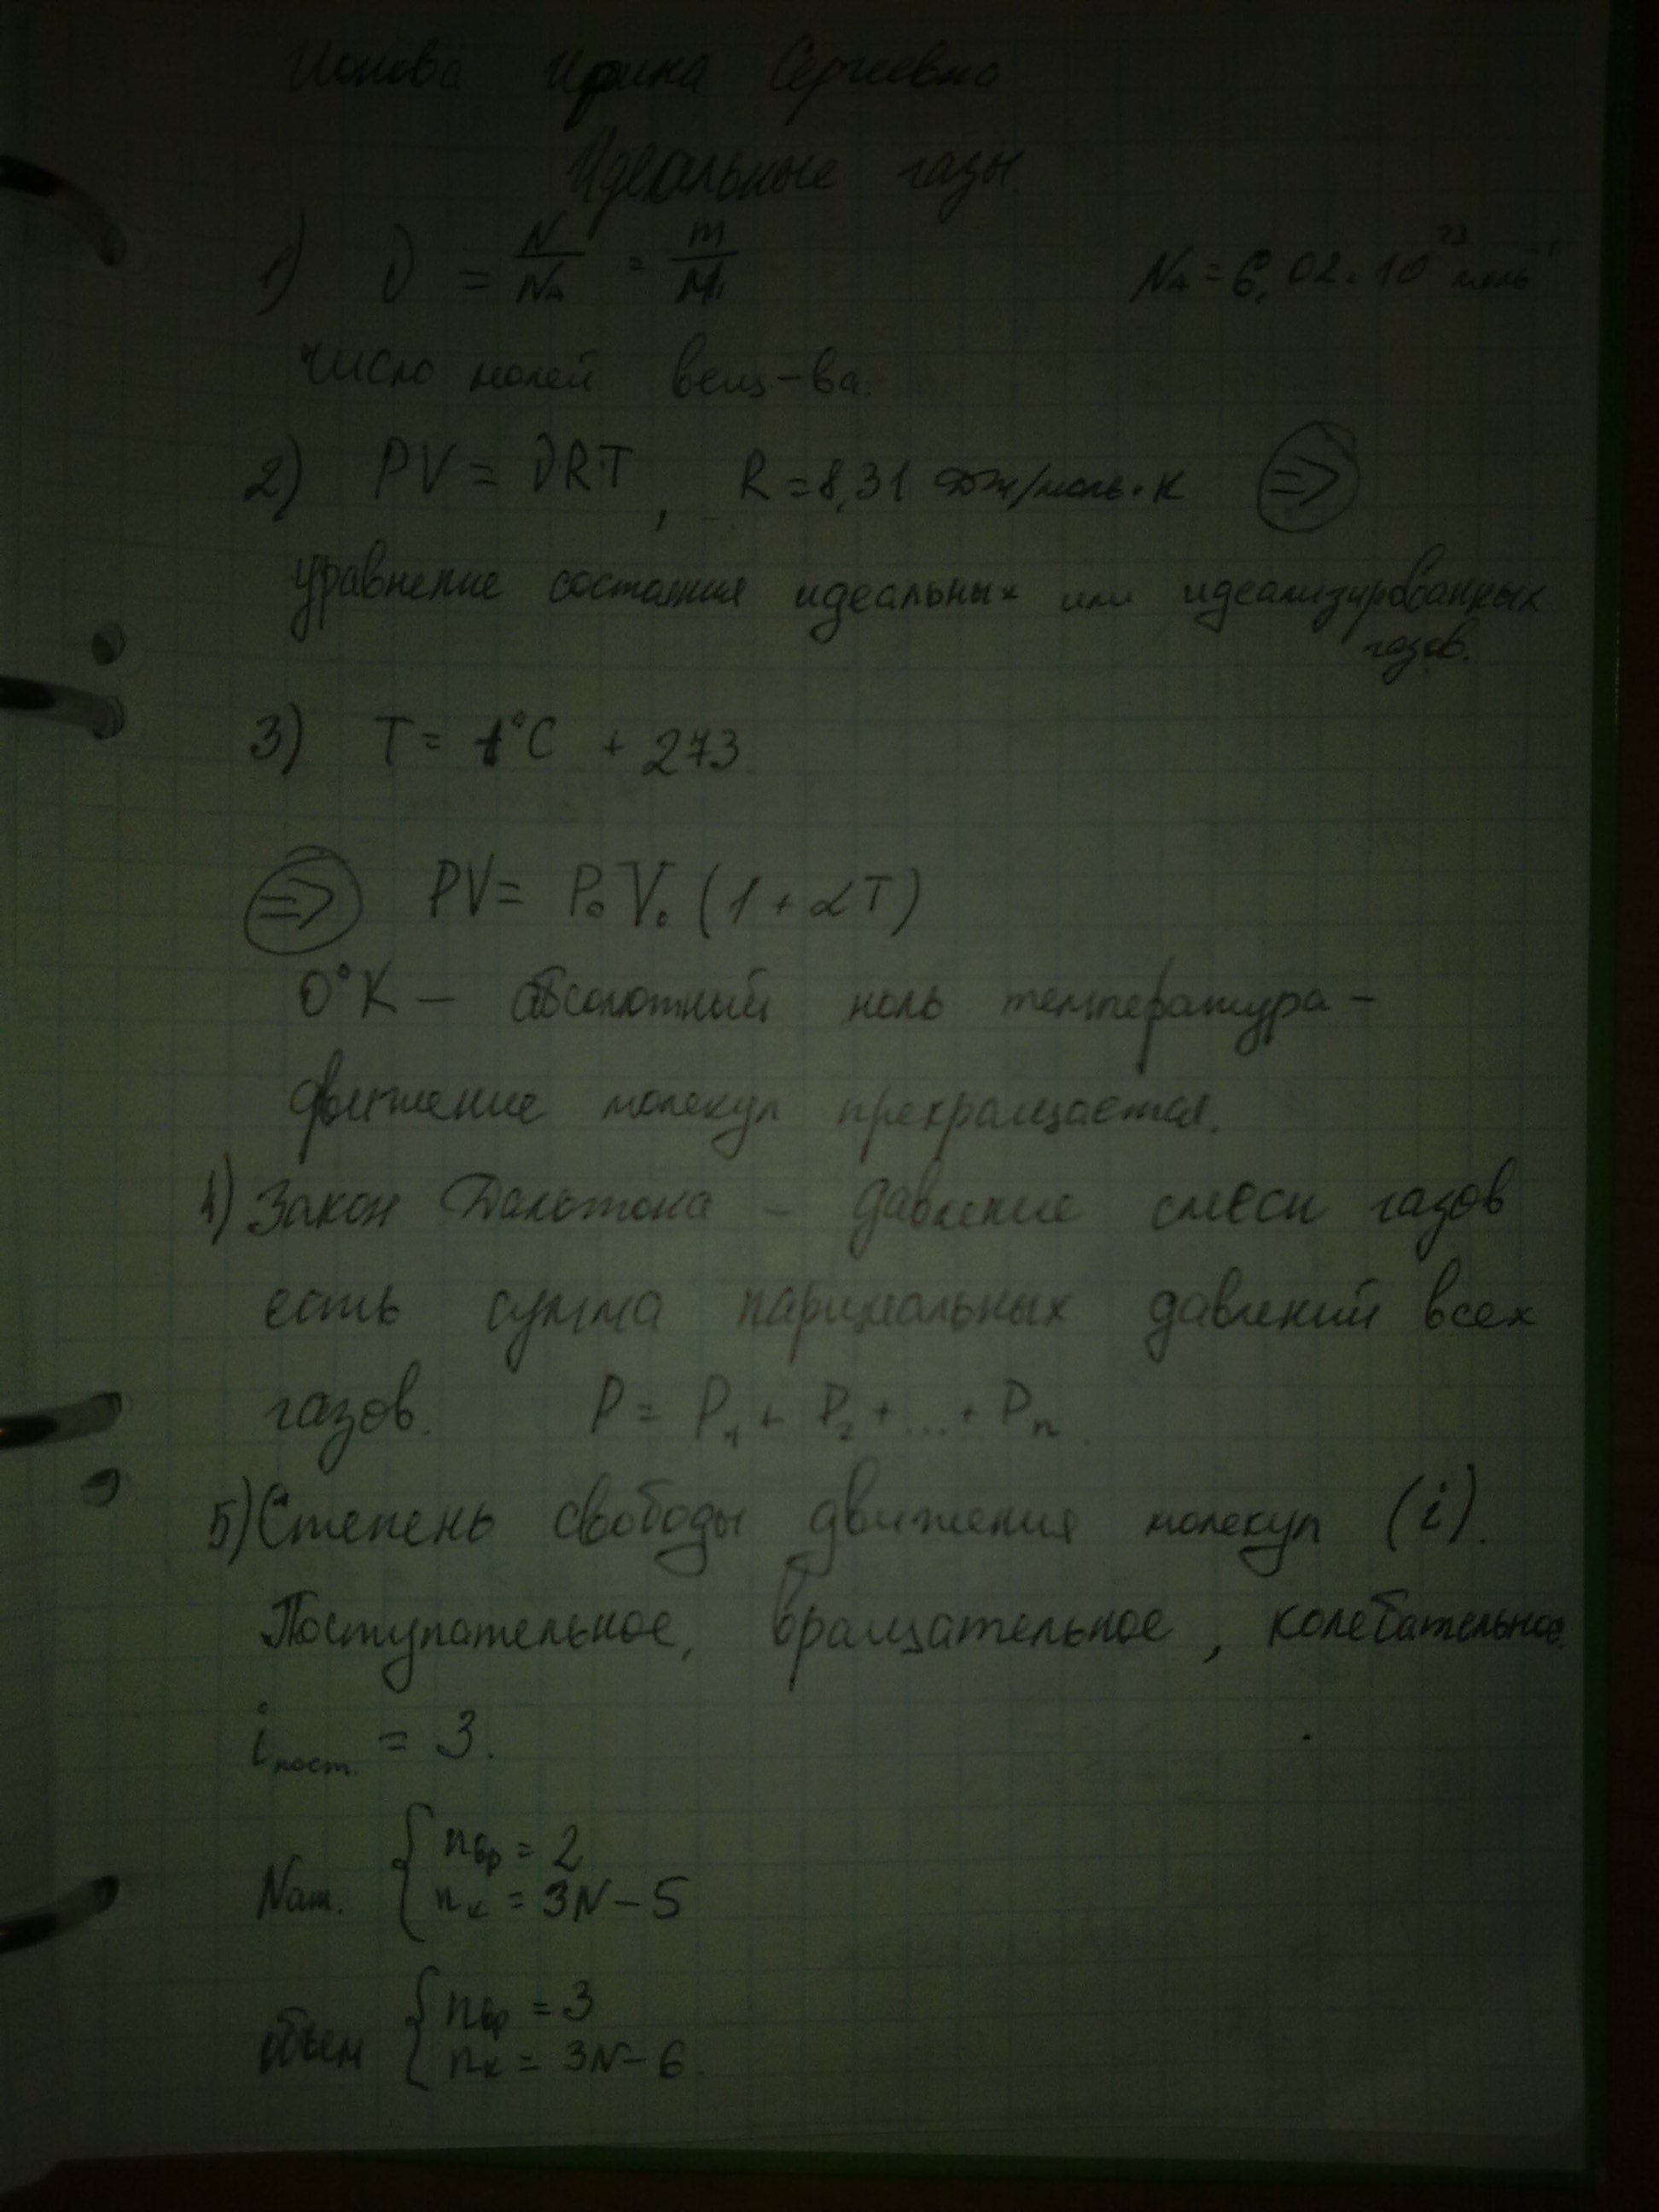 Ионова Ирина Сергеевна
Идеальные газы.
1) ν = N/Nₐ = m/M, Nₐ = 6,02·10²³ моль⁻¹
число молей вещ-ва.
2) PV = νRT, R = 8,31 Дж/моль·К ⇒
уравнение состояния идеальных или идеализированных
газов.
3) T = t°C + 273
⇒ PV = P₀V₀(1 + αT)
0°К – абсолютный ноль температура –
движение молекул прекращается.
4) Закон Дальтона – давление смеси газов
есть сумма парциальных давлений всех
газов. P = P₁ + P₂ + ... + Pₙ
5) Степень свободы движения молекул (i).
Поступательное, вращательное, колебательное.
iпост. = 3.
Nат. { nвр = 2
nк = 3N – 5
объем { nвр = 3
nк = 3N – 6.